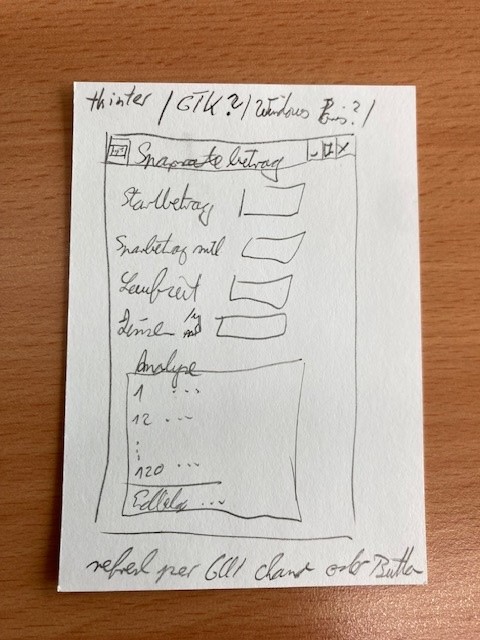 thinter / GTK? / Windows ?/
Sparrate betrag - X
Startbetrag
Sparbetrag mtl
Laufzeit
Zinsen
Analyse
1 ...
12 ...
:
120 ...
...
refresh per GUI change oder Button